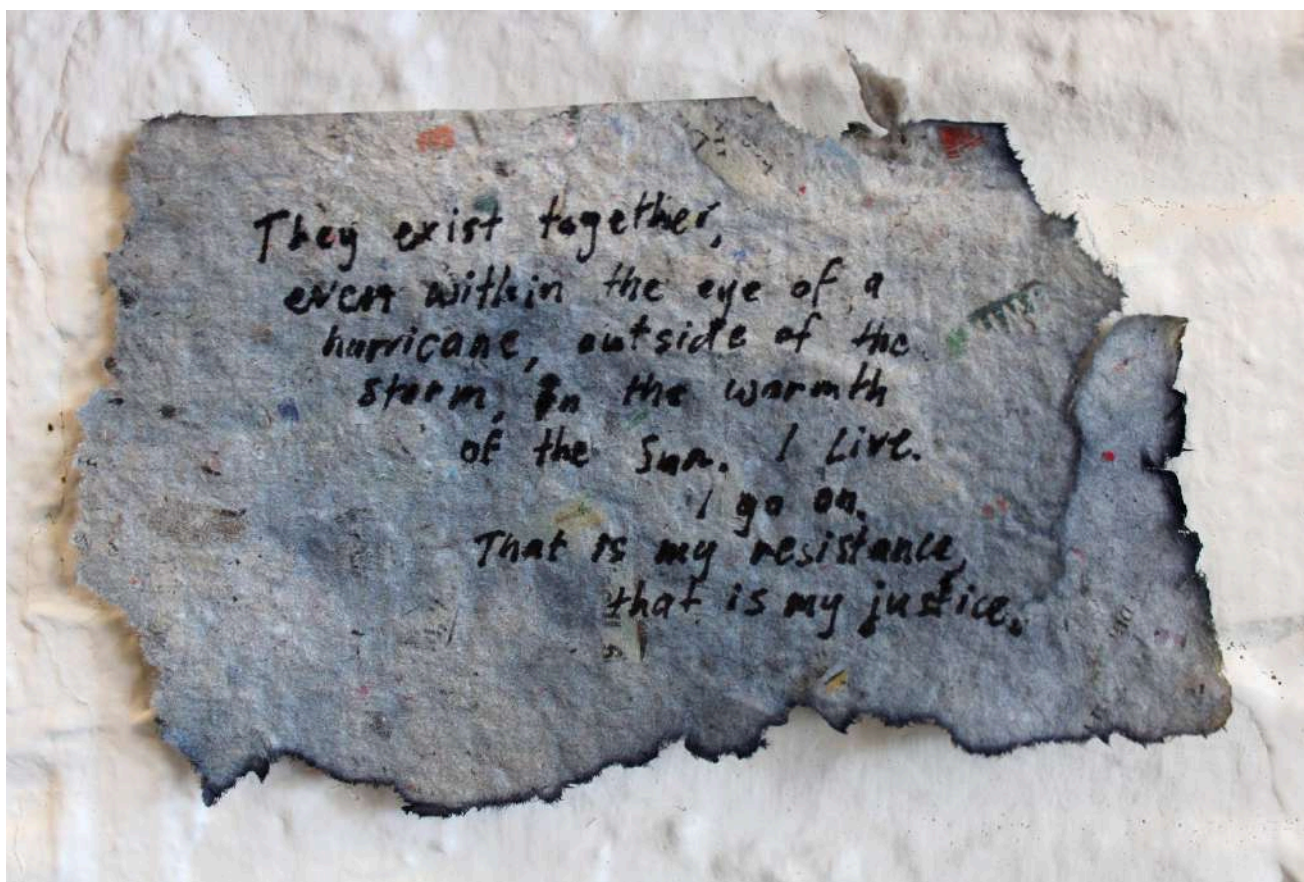 They exist together,
even within the eye of a
hurricane, outside of the
storm, in the warmth
of the Sun. I Live.
I go on.
That is my resistance,
that is my justice.